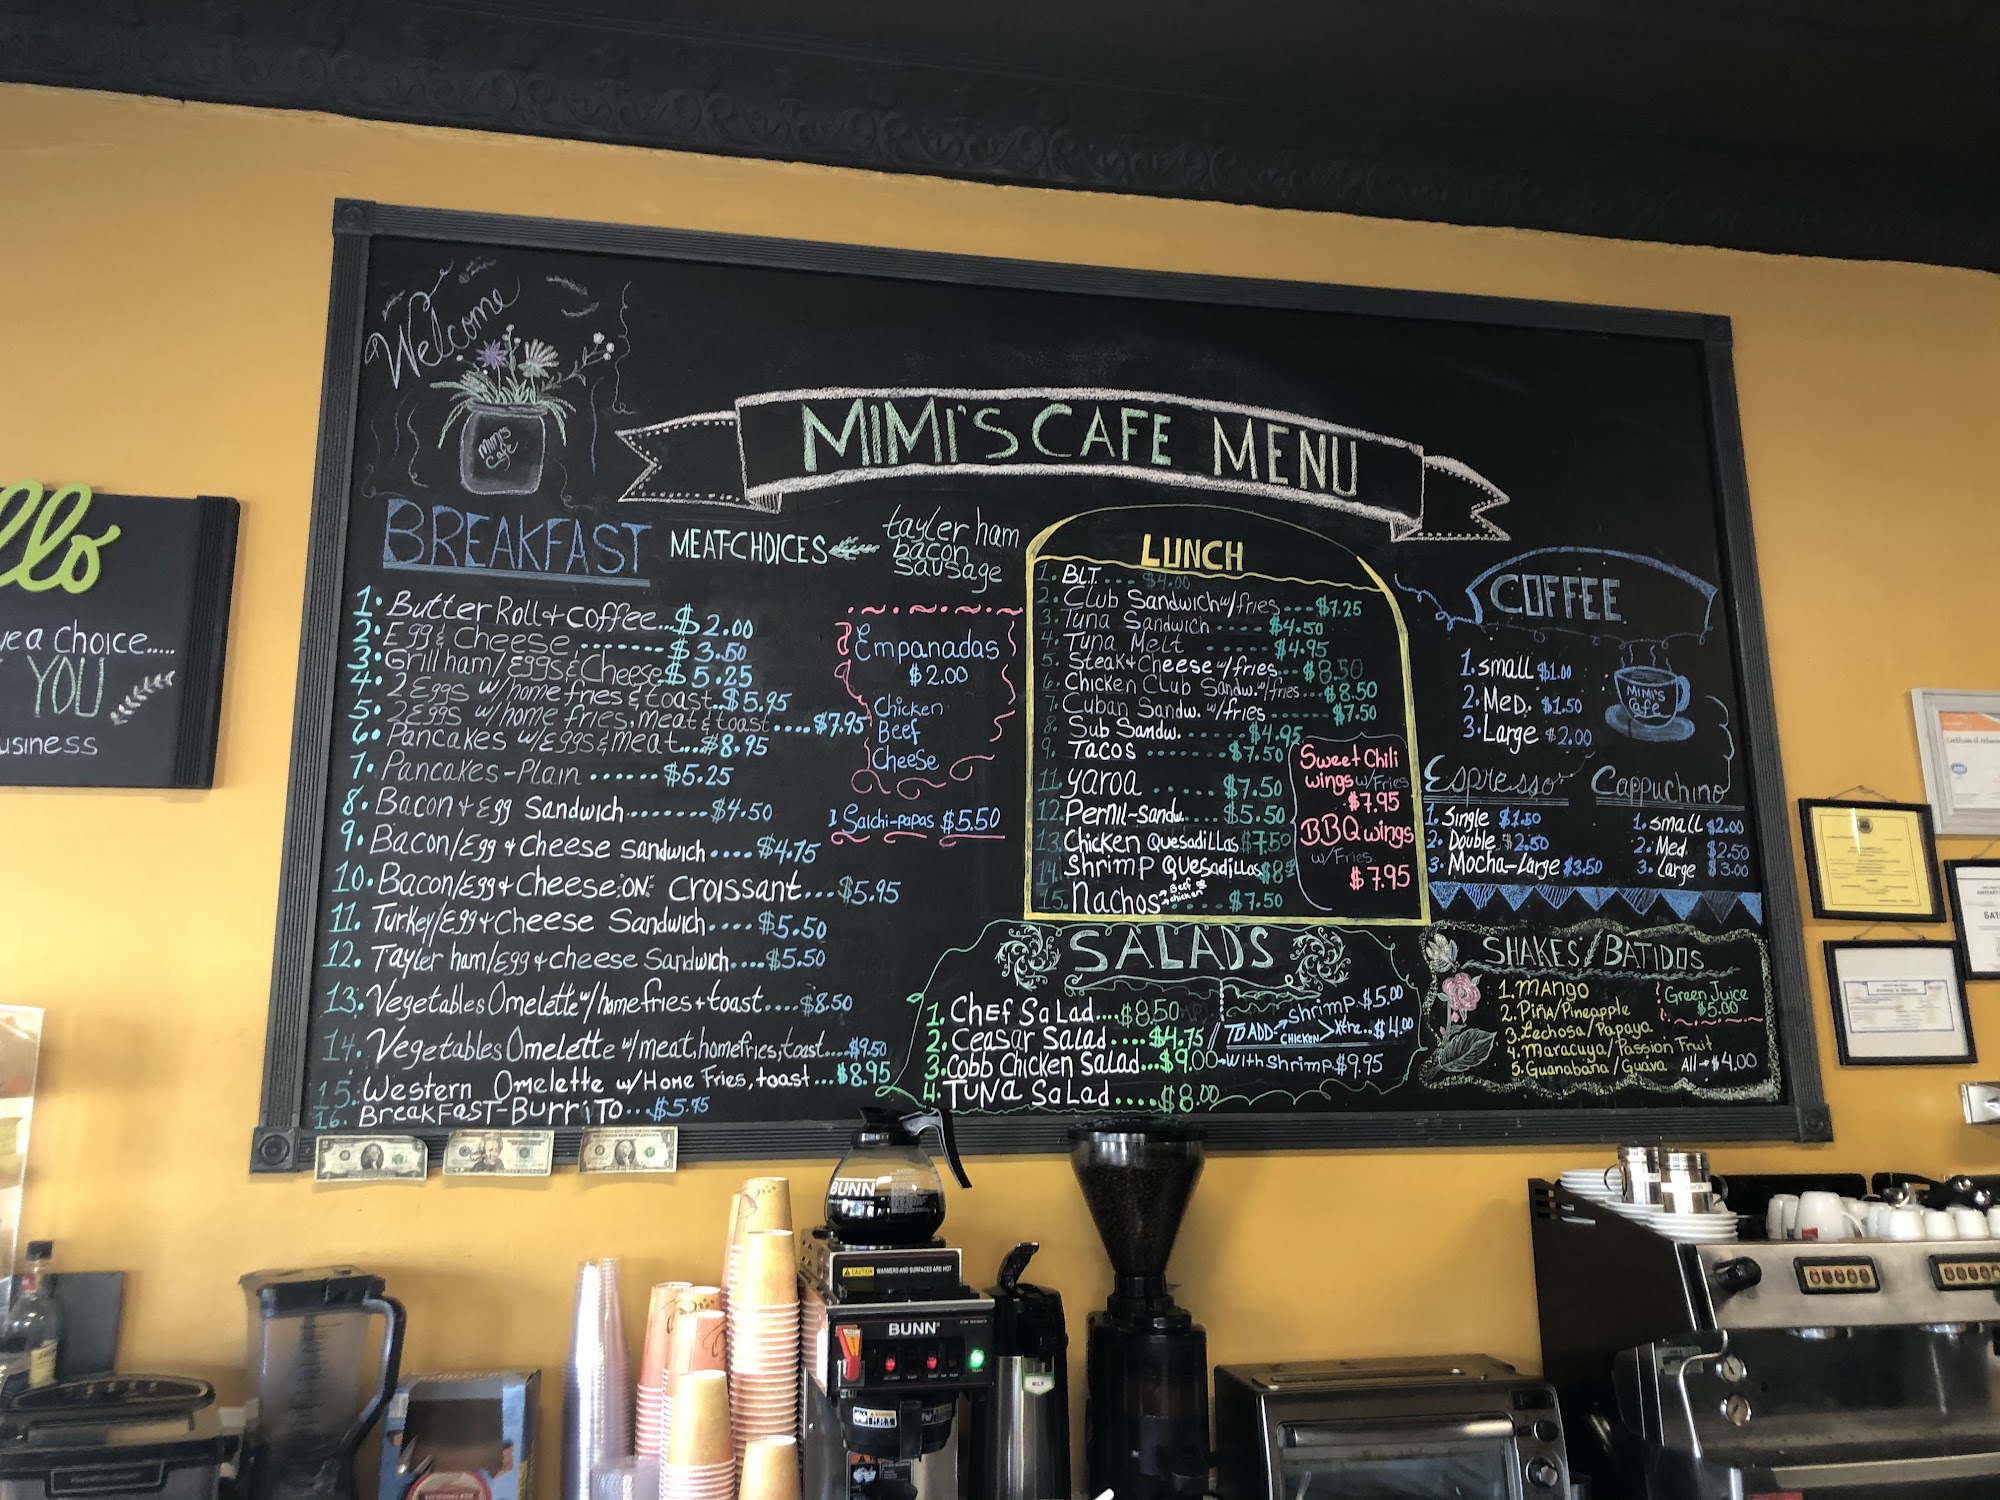 Welcome
Mimi's
Cafe
MIMI'S CAFE MENU
BREAKFAST
MEAT-CHOICES
tayler ham
bacon
sausage
1. Butter Roll + coffee... $2.00
2. Egg & Cheese ........ $3.50
3. Grill ham/eggs & Cheese $5.25
4. 2 Eggs w/home fries & toast..$5.95
5. 2 Eggs w/home fries, meat & toast....$7.95
6. Pancakes w/Eggs & meat...$8.95
7. Pancakes-Plain ......$5.25
8. Bacon + Egg Sandwich........$4.50
9. Bacon/Egg + Cheese Sandwich....$4.75
10. Bacon/Egg + Cheese :ON: Croissant...$5.95
11. Turkey/Egg + Cheese Sandwich....$5.50
12. Tayler ham/Egg + cheese Sandwich....$5.50
13. Vegetables Omelette w/homefries + toast....$8.50
14. Vegetables Omelette w/meat, homefries, toast....$9.50
15. Western Omelette w/Home Fries, toast...$8.95
16. BreakFast-Burrito...$5.75
Empanadas
$2.00
Chicken
Beef
Cheese
1 Salchi-papas $5.50
LUNCH
1. BLT.... $4.00
2. Club Sandwich w/fries...$7.25
3. Tuna Sandwich ..... $4.50
4. Tuna Melt ..... $4.95
5. Steak + Cheese w/fries...$8.50
6. Chicken Club Sandw. w/fries...$8.50
7. Cuban Sandw. w/fries .....$7.50
8. Sub Sandw. ...... $4.95
9. Tacos ......$7.50
11. yaroa ..... $7.50
12. Pernil-Sandw..... $5.50
13. Chicken Quesadillas $7.50
14. Shrimp Quesadillas $8
15. Nachos Beef or chicken ..... $7.50
Sweet Chili
wings w/Fries
$7.95
BBQ wings
w/Fries
$7.95
SALADS
1. Chef Salad....$8.50
2. Ceasar Salad....$4.75
3. Cobb Chicken Salad...$9.00 → With Shrimp. $9.95
4. Tuna Salad ....$8.00
TO ADD: Shrimp. $5.00
CHICKEN > Xtra...$4.00
COFFEE
1. small $1.00
2. Med. $1.50
3. Large $2.00
MIMI'S
Cafe
Espresso
1. Single $1.50
2. Double $2.50
3. Mocha-Large $3.50
Cappuchino
1. small $2.00
2. Med. $2.50
3. Large $3.00
SHAKES/BATIDOS
1. Mango
2. Piña/Pineapple
3. Lechosa/Papaya
4. Maracuya/Passion Fruit
5. Guanabana/Guava All → $4.00
Green Juice
$5.00
llo
ve a Choice.....
YOU
usiness
BUNN
CAUTION WARMERS AND SURFACES ARE HOT
BUNN
MILK